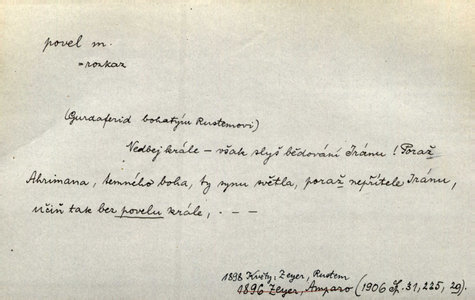 povel m.
= rozkaz
(Gurdaferid bohatýru Rustemovi)
Nedbej krále – však slyš bědování Iránu! Poraž
Ahrimana, temného boha, ty synu světla, poraž nepřítele Iránu,
učiň tak bez povelu krále, - - -
1898 Květy: Zeyer, Rustem
1896 Zeyer, Amparo (1906 31, 225, 29)